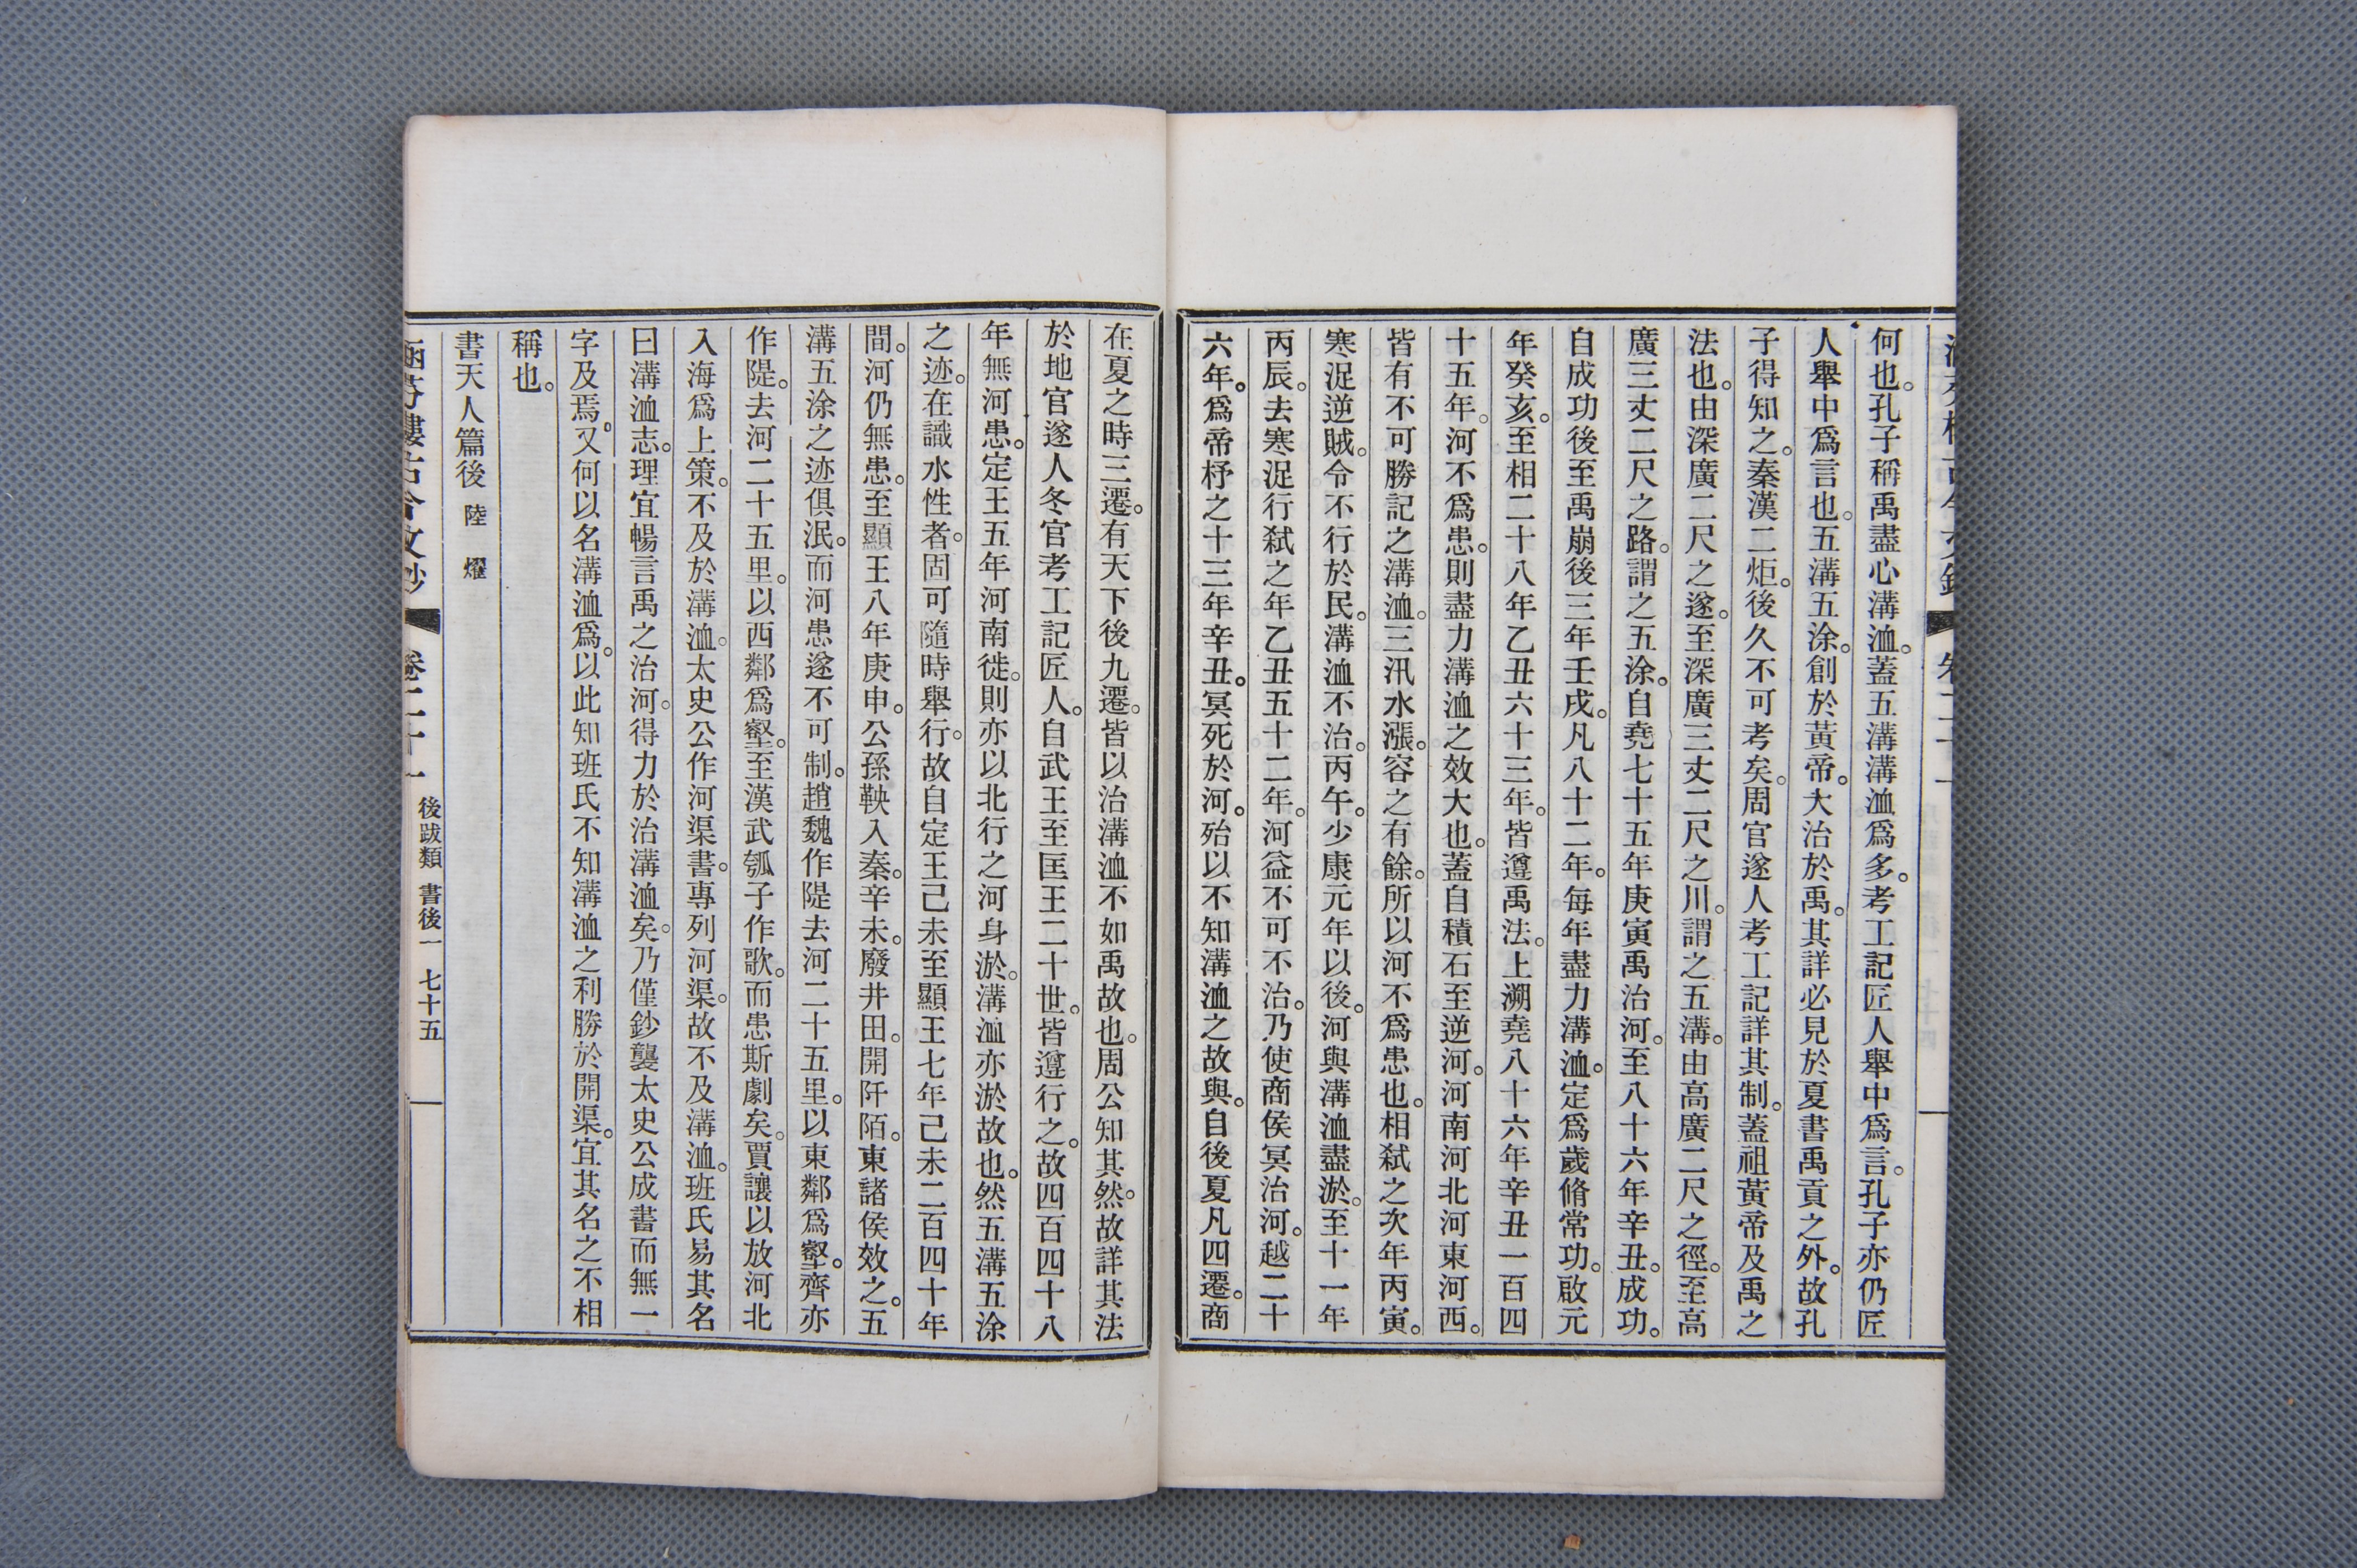 何也。孔子稱禹盡心溝洫。蓋五溝溝洫爲多。考工記匠人舉中爲言。孔子亦仍匠
人舉中爲言也。五溝五涂。創於黃帝。大治於禹。其詳必見於夏書禹貢之外。故孔
子得知之。秦漢二炬。後久不可考矣。周官遂人考工記詳其制。蓋祖黃帝及禹之
法也。由深廣二尺之遂。至深廣三丈二尺之川。謂之五溝。由高廣二尺之徑。至高
廣三丈二尺之路。謂之五涂。自堯七十五年庚寅禹治河。至八十六年辛丑。成功。
自成功後至禹崩後三年壬戌。凡八十二年。每年盡力溝洫。定爲歲脩常功。啟元
年癸亥。至相二十八年乙丑六十三年。皆遵禹法。上溯堯八十六年辛丑一百四
十五年。河不爲患。則盡力溝洫之效大也。蓋自積石至逆河。河南河北河東河西。
皆有不可勝記之溝洫。三汛水漲。容之有餘。所以河不爲患也。相弒之次年丙寅。
寒浞逆賊。令不行於民。溝洫不治。丙午。少康元年以後。河與溝洫盡淤。至十一年
丙辰。去寒浞行弒之年乙丑五十二年。河益不可不治。乃使商侯冥治河。越二十
六年。爲帝杼之十三年辛丑。冥死於河。殆以不知溝洫之故與。自後夏凡四遷。商
在夏之時三遷。有天下後九遷。皆以治溝洫不如禹故也。周公知其然。故詳其法
於地官遂人冬官考工記匠人。自武王至匡王二十世。皆遵行之。故四百四十八
年無河患。定王五年河南徙。則亦以北行之河身淤。溝洫亦淤故也。然五溝五涂
之迹。在識水性者。固可隨時舉行。故自定王己未至顯王七年己未二百四十年
間。河仍無患。至顯王八年庚申。公孫鞅入秦。辛未。廢井田。開阡陌。東諸侯效之。五
溝五涂之迹俱泯。而河患遂不可制。趙魏作隄去河二十五里。以東鄰爲壑。齊亦
作隄。去河二十五里。以西鄰爲壑。至漢武瓠子作歌。而患斯劇矣。賈讓以放河北
入海爲上策。不及於溝洫。太史公作河渠書。專列河渠。故不及溝洫。班氏易其名
曰溝洫志。理宜暢言禹之治河。得力於治溝洫矣。乃僅鈔襲太史公成書而無一
字及焉。又何以名溝洫爲。以此知班氏不知溝洫之利勝於開渠。宜其名之不相
稱也。
書天人篇後 陸燿
涵芬樓古今文鈔 卷二十一 後跋類 書後一 七十五